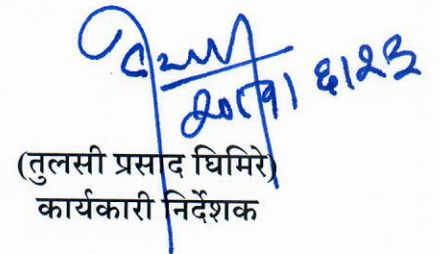 २०८१।६।२३
(तुलसी प्रसाद घिमिरे)
कार्यकारी निर्देशक